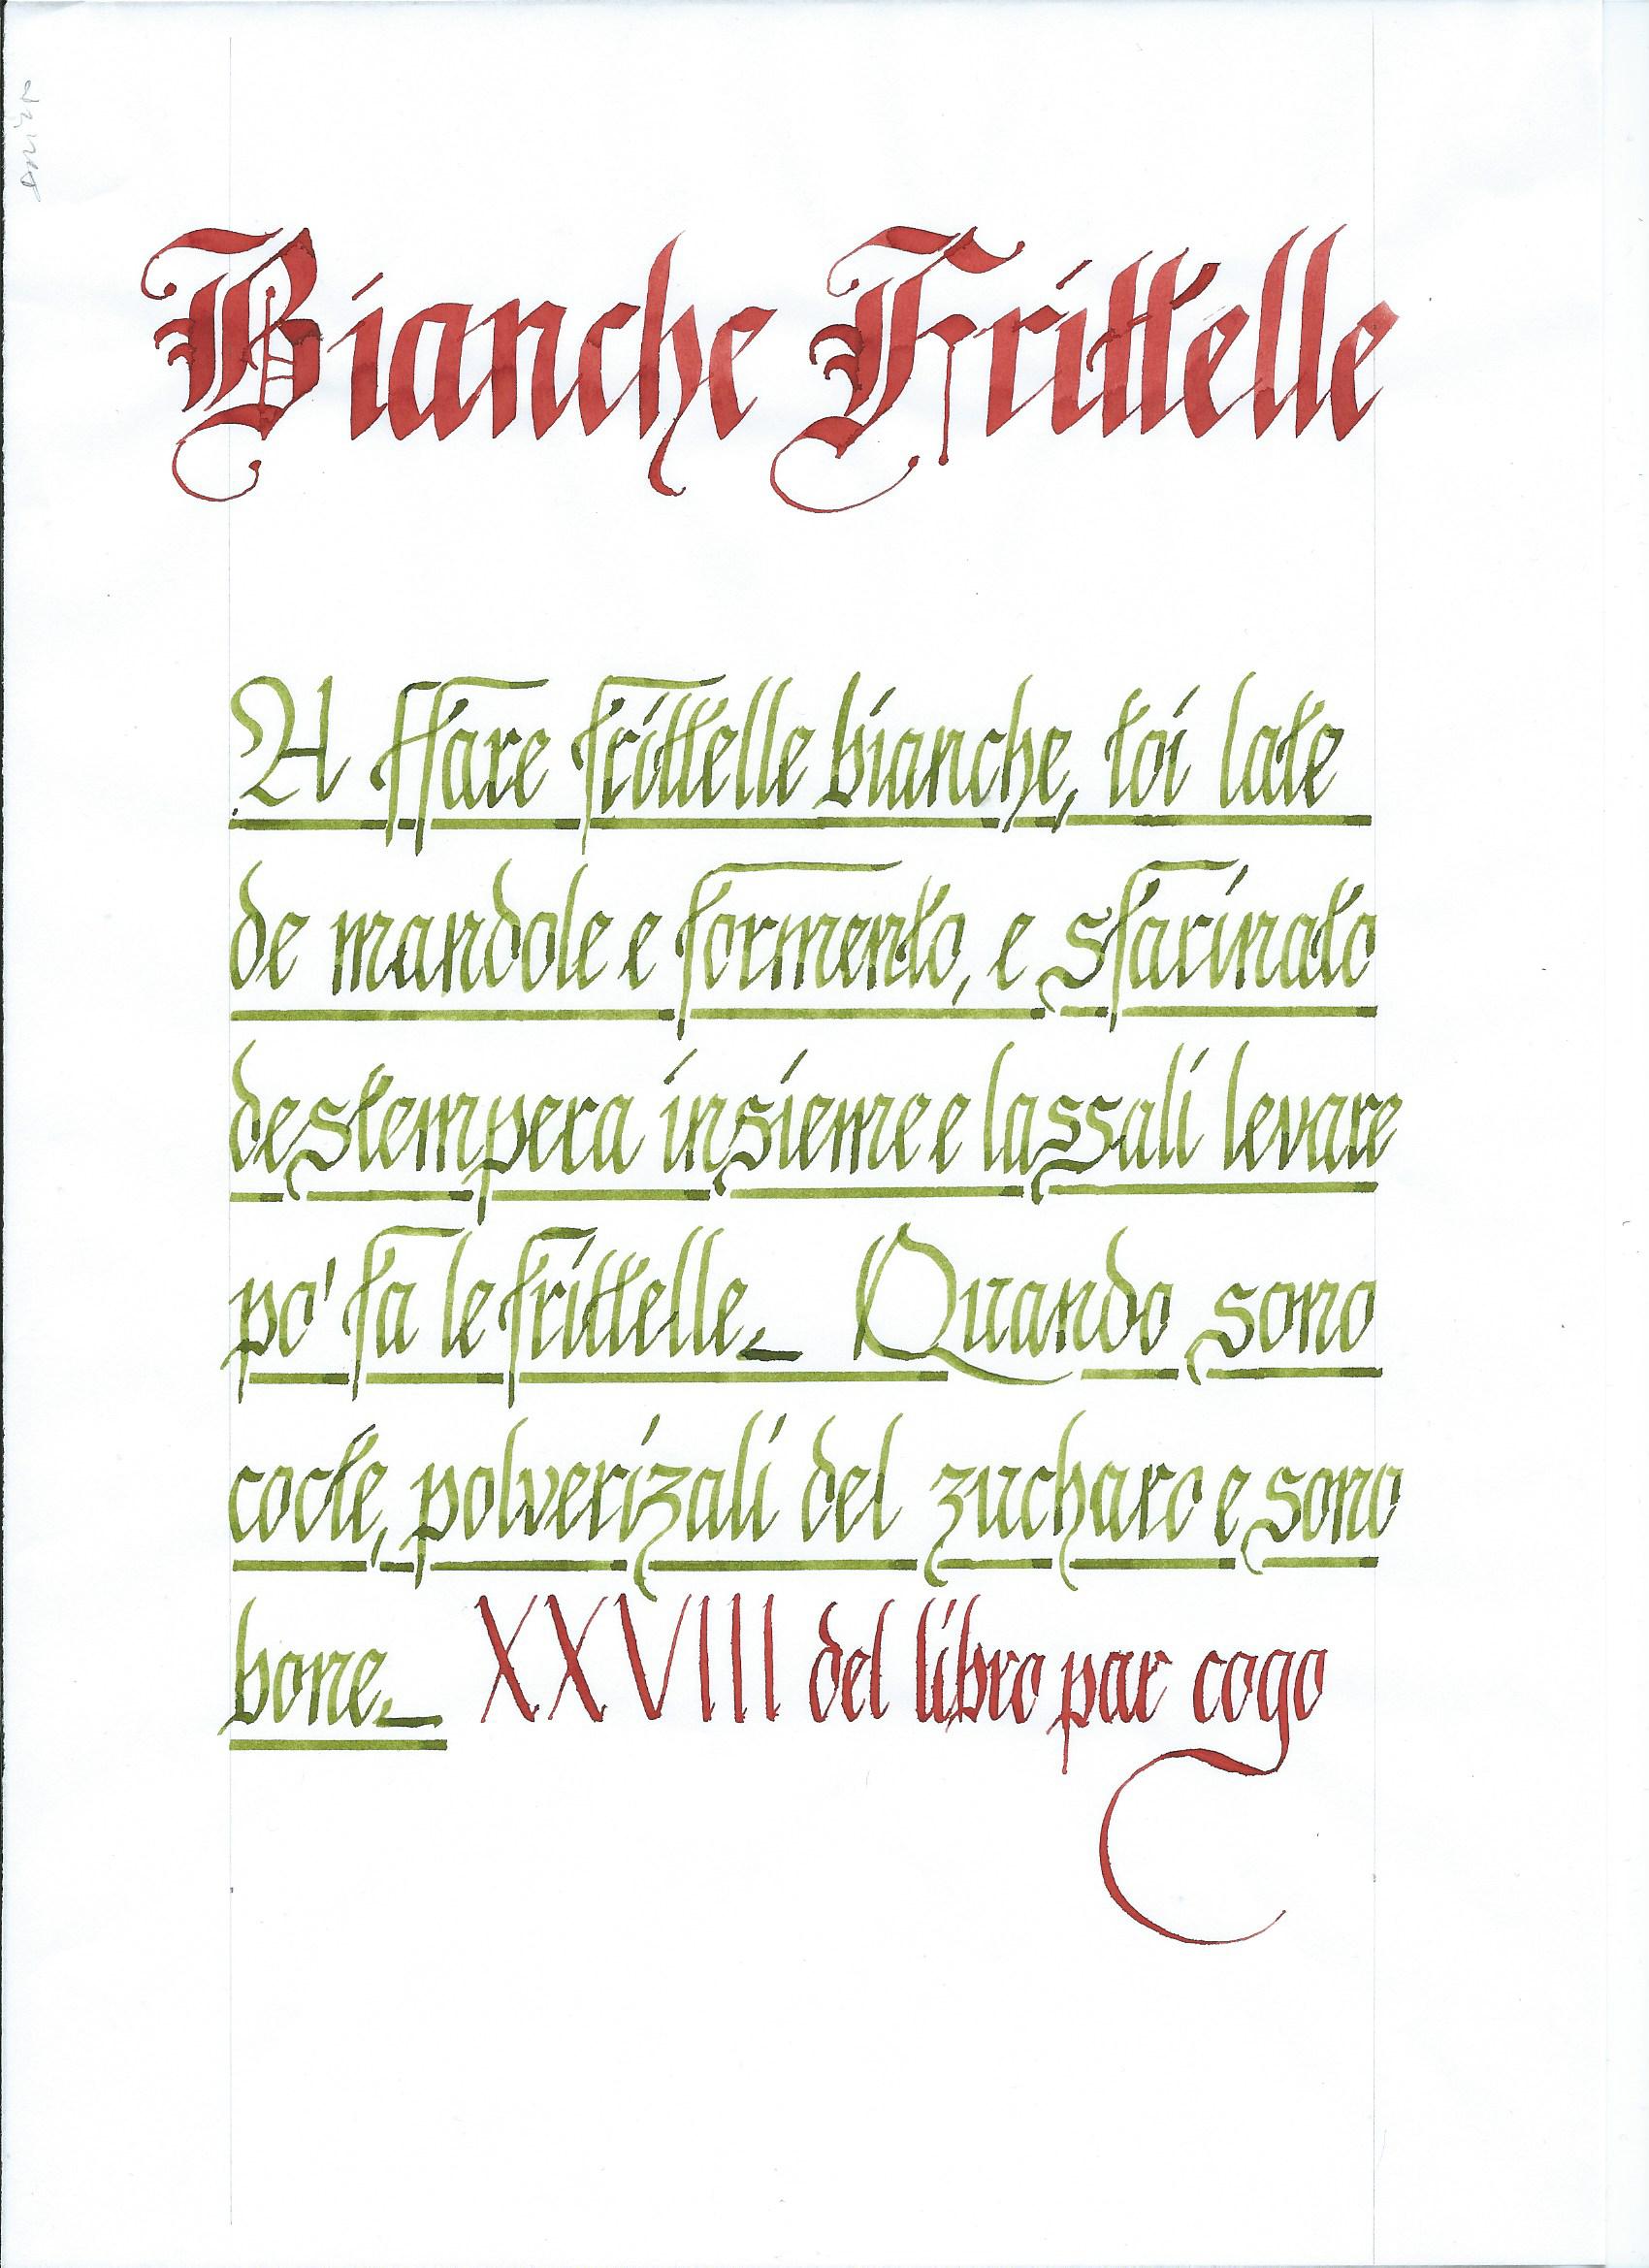 Bianche Frittelle
A ffare frittelle bianche, toi late
de mandole e formento, e sfarinato
destempera insieme e lassali levare
po' fa le frittelle. Quando sono
cocte, polverizali del zucharo e sono
bone. XXVIII del libro par cogo